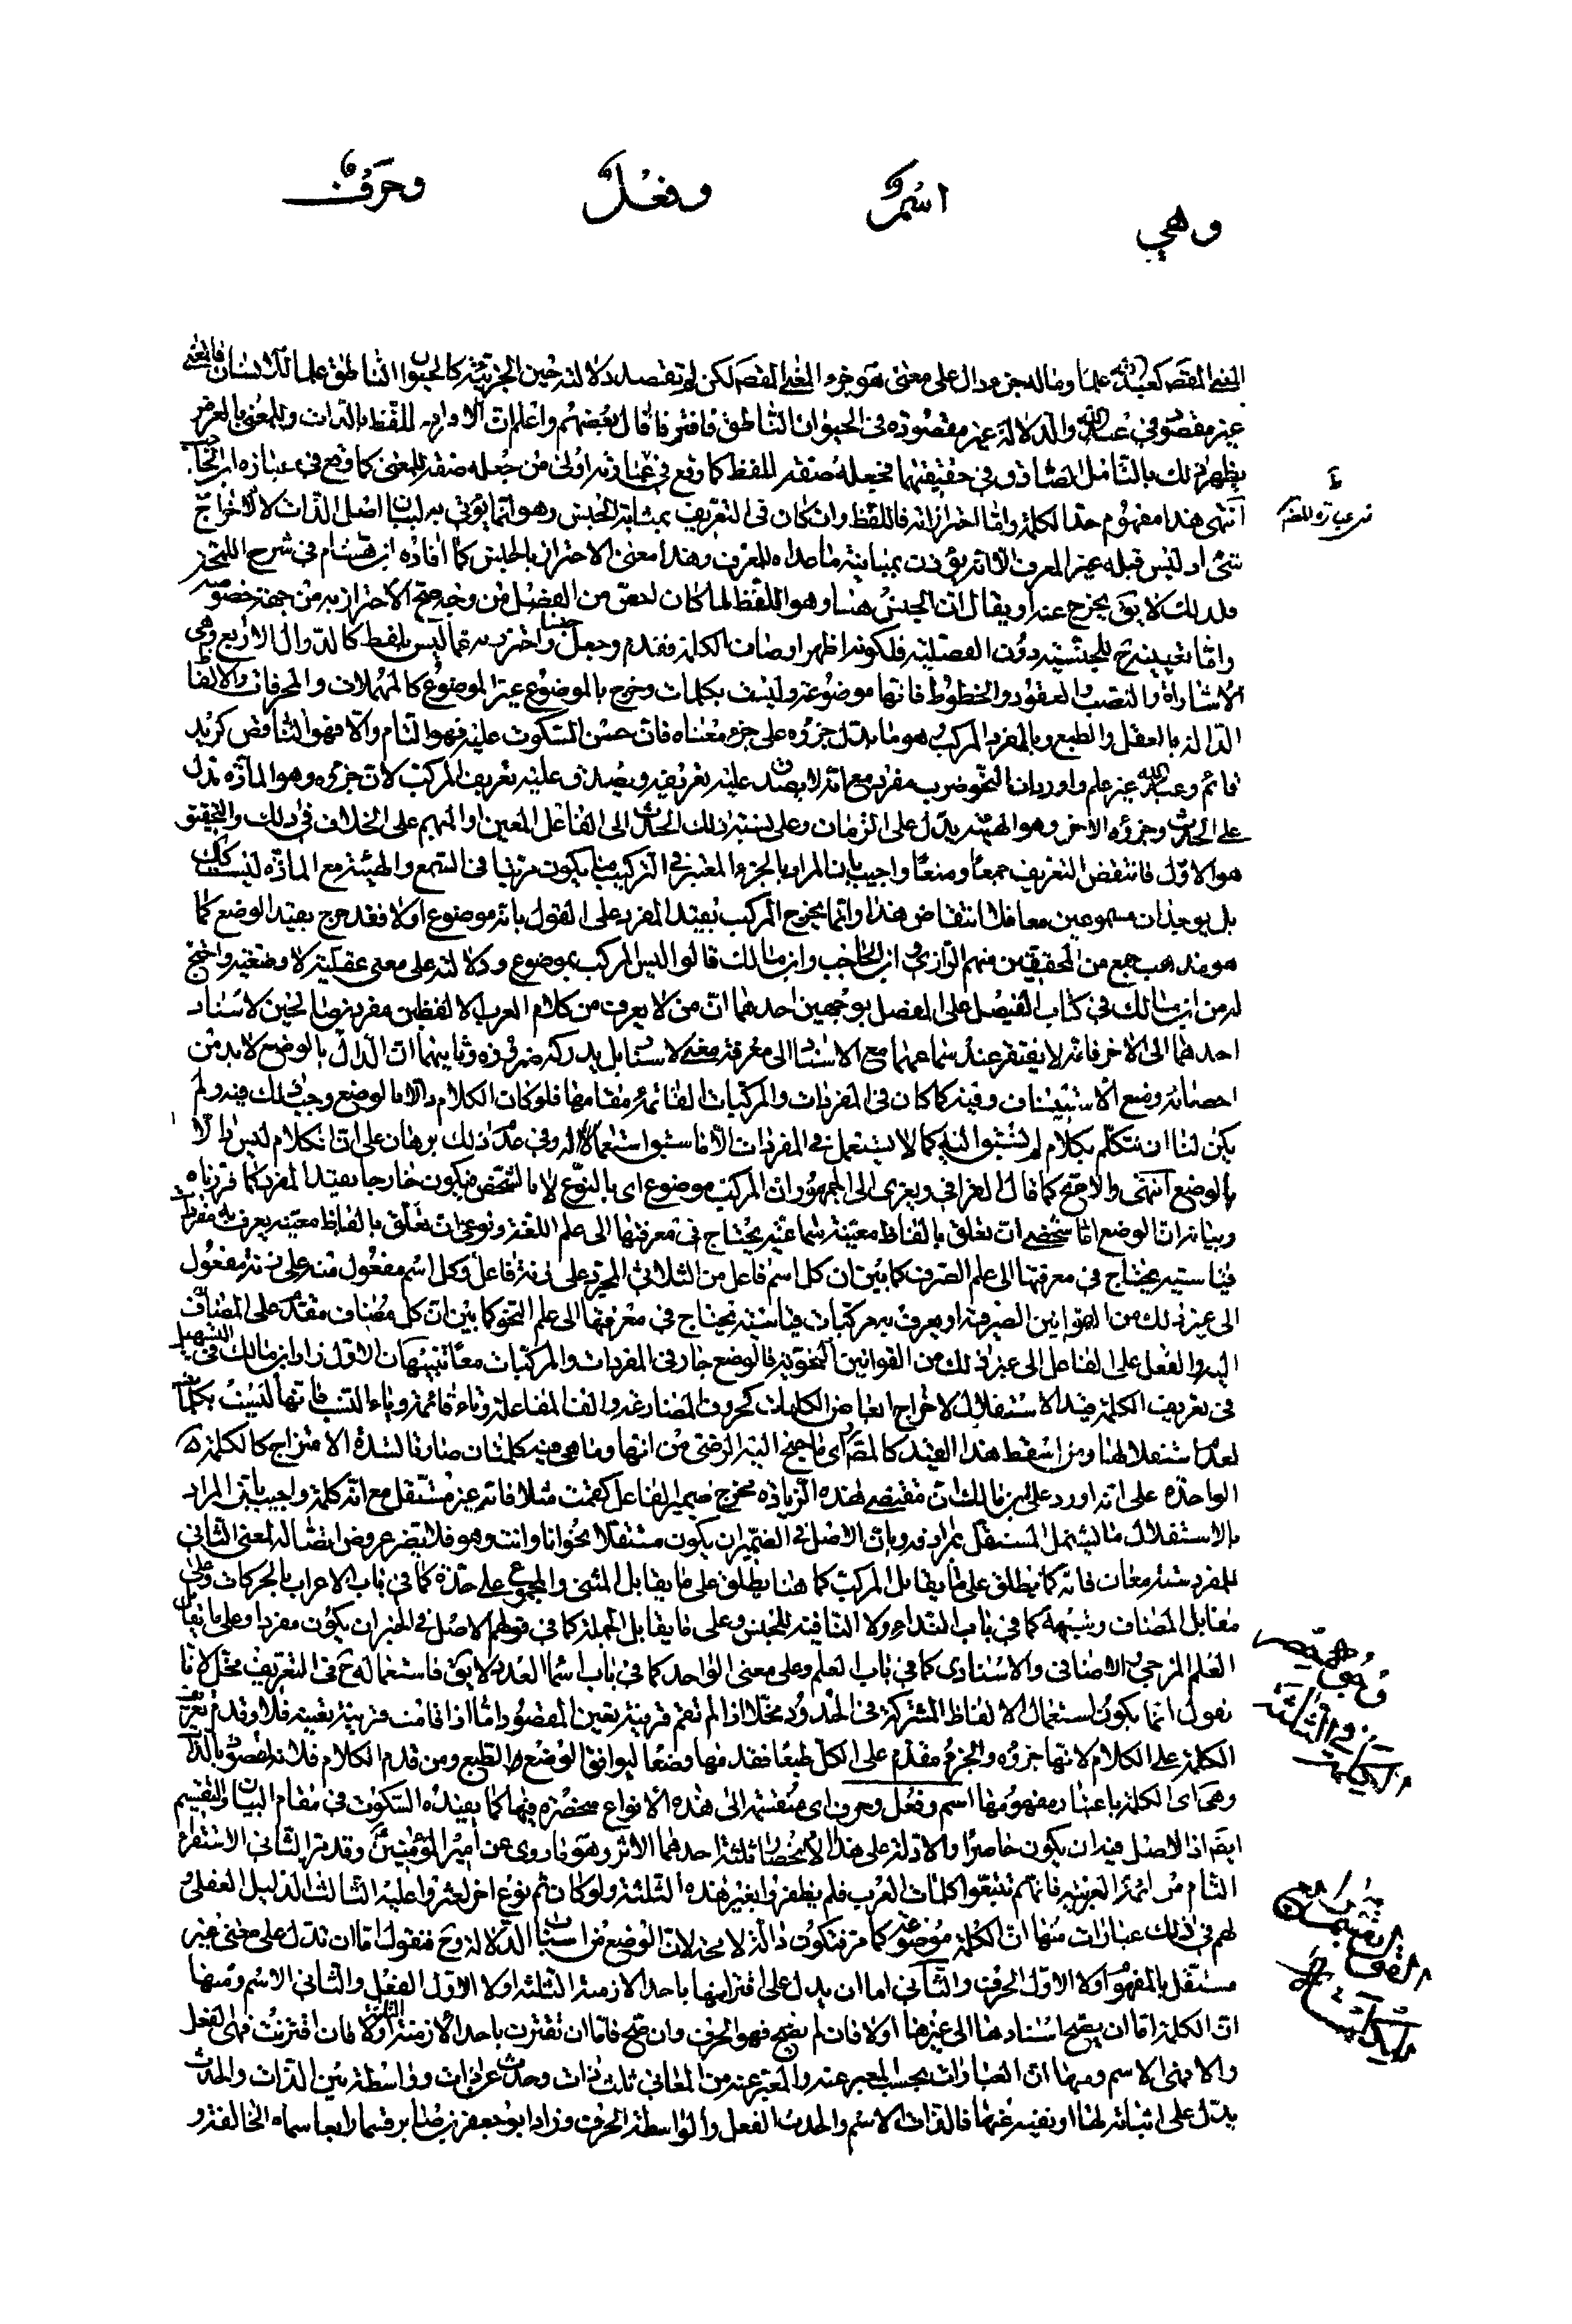 وهي اسم وفعل وحرف
المعنى المقصود كعبد الله علما وماله جزء دال على معنى هو جزء المعنى المقصود لكن لم تقصد دلالته حين الجزئية كالحيوان الناطق علما لانسان فالمعنى
غير مقصود في عبد الله والدلالة غير مقصودة في الحيوان الناطق فافترقا قال بعضهم واعلم ان الافراد للفظ بالذات وللمعنى بالعرض
يظهر ذلك بالتامل الصادق في حقيقتهما فجعله صفة للفظ كما وقع في عبارته اولى من جعله صفة للمعنى كما وقع في عبارة ابن الحاجب
انتهى هذا مفهوم حد الكلمة واما احترازاته فاللفظ وان كان في التعريف بمثابة الجنس وهو انما يؤتى به لبيان اصل الذات لا لاخراج
شئ اذ ليس قبله غير المعرف الا انه يؤذن بمباينة ما عداه للمعرف وهذا معنى الاحتراز بالجنس كما افاده ابن هشام في شرح اللمحة
ولذلك لا يق يخرج عنه او يقال ان الجنس هنا وهو اللفظ لما كان اعم من الفصل من وجه صح الاحتراز به من جهة خصوصه
واما تعيينه ح للجنسية دون الفصلية فلكونه اظهر اوصاف الكلمة فقدم وجعل جنسا واحترز به عما ليس بلفظ كالدوال الاربع وهي
الاشارات والنصب والعقود والخطوط فانها موضوعة وليست بكلمات وخرج بالموضوع غير الموضوع كالمهملات والمحرفات والالفاظ
الدالة بالعقل والطبع وبالمفرد المركب هو ما يدل جزؤه على جزء معناه فان حسن السكوت عليه فهو التام والا فهو الناقص كزيد
قائم وعبد الله غير علم واورد ان نحو ضرب مفرد مع انه لا يصدق عليه تعريفه ويصدق عليه تعريف المركب لان جزءه وهو المادة تدل
على الحدث وجزؤه الاخر وهو الهيئة يدل على الزمان وعلى نسبة ذلك الحدث الى الفاعل المعين او المبهم على الخلاف في ذلك والتحقيق
هو الاول فانتقض التعريف جمعا ومنعا واجيب بان المراد بالجزء المعتبر في التركيب ما يكون مرتبا في السمع والهيئة مع المادة ليست كذلك
بل يوجدان مسموعين معا فلا انتقاض هذا وانما يخرج المركب بقيد المفرد على القول بانه موضوع اولا فقد خرج بقيد الوضع كما
هو مذهب جمع من المحققين منهم الرازي ابن الحاجب وابن مالك قالوا ليس المركب بموضوع ودلالته على معنى عقلية لا وضعية واحتج
له ابن مالك في كتاب الفيصل على المفصل بوجهين احدهما ان من لا يعرف من كلام العرب الا لفظين مفردين صالحين لاسناد
احدهما الى الاخر فانه لا يفتقر عند سماعهما مع الاسناد الى معرفة معنى الاسناد بل يدركه ضرورة وثانيهما ان الدال بالوضع لا بد من
احصائه ومنع الاستيناف فيه كما كان في المفردات والمركبات القائمة مقامها فلو كان الكلام دالا بالوضع وجب ذلك فيه ولم
يكن لنا ان نتكلم بكلام لم نسبق اليه كما لا يستعمل في المفردات الا ما سبق استعماله وفي عدم ذلك برهان على ان الكلام ليس دالا
بالوضع انتهى والاصح كما قال القرافي ويعزى الى الجمهور ان المركب موضوع اي بالنوع لا بالشخص فيكون خارجا بقيد المفرد كما قررناه
وبيانه ان الوضع اما شخصي ان تعلق بالفاظ معينة سماعية يحتاج في معرفتها الى علم اللغة ونوعي ان تعلق بالفاظ معينة يعرف به مفردات
قياسية يحتاج في معرفتها الى علم الصرف كما بين ان كل اسم فاعل من الثلاثي المجرد على زنة فاعل وكل اسم مفعول منه على زنة مفعول
الى غير ذلك من القوانين الصرفية او يعرف به مركبات قياسية تحتاج في معرفتها الى علم النحو كما بين ان كل مضاف مقدم على المضاف
اليه والفعل على الفاعل الى غير ذلك من القوانين النحوية فالوضع جار في المفردات والمركبات معا تنبيهان الاول زاد ابن مالك في التسهيل
في تعريف الكلمة قيد الاستقلال لاخراج ابعاض الكلمات كحروف المضارعة والف المفاعلة وتاء قائمة وياء النسب فانها ليست بكلمات
لعدم استقلالها ومن اسقط هذا القيد كالمصر اى ما جنح اليه الرضي من انها وما هي فيه كلمتان صارتا لشدة الامتزاج كالكلمة
الواحدة على انه اورد على ابن مالك ان مقتضى هذه الزيادة مخرج ضمير الفاعل كقمت مثلا فانه غير مستقل مع انه كلمة واجيب بان المراد
بالاستقلال ما يشمل المستقل بمرادفه وبان الاصل في الضمير ان يكون مستقلا نحو انا وانت وهو فلا يضر عروض اتصاله لمعنى الثاني
للمفرد ستة معان فانه كما يطلق على ما يقابل المركب كما هنا يطلق على ما يقابل المثنى والمجموع على حدة كما في باب الاعراب بالحركات وعلى
مقابل المضاف وشبهه كما في باب النداء ولا النافية للجنس وعلى ما يقابل الجملة كما في قولهم الاصل في الخبر ان يكون مفردا وعلى ما يقابل
العلم المزجي الاضافي والاسنادي كما في باب العلم وعلى معنى الواحد كما في باب اسما العدد لا يق فاستعماله ح في التعريف مخل لانا
نقول انما يكون استعمال الالفاظ المشتركة في الحدود مخلا اذا لم تقم قرينة تعين المقصود اما اذا قامت قرينة تعينه فلا وقدم تعريف
الكلمة على الكلام لانها جزؤه والجزء مقدم على الكل طبعا فقدمها وضعا ليوافق الوضع الطبع ومن قدم الكلام فلانه المقصود بالذات
وهي اى الكلمة باعتبار مفهومها اسم وفعل وحرف اى منقسمة الى هذه الانواع منحصرة فيها كما يفيده السكوت في مقام البيان والتقسيم
ايضا اذ الاصل فيه ان يكون حاصرا والادلة على هذا الانحصار ثلثة احدها الاثر وهو ما روى عن امير المؤمنين وقد مر الثاني الاستقراء
التام من ائمة العربية فانهم تتبعوا كلمات العرب فلم يظفروا بغير هذه الثلثة ولو كان ثم نوع اخر لعثروا عليه الثالث الدليل العقلي و
لهم في ذلك عبارات منها ان الكلمة موضوعة كما مر فتكون دالة لا محة لان الوضع من اسباب الدلالة وح فنقول اما ان تدل على معنى غير
مستقل بالمفهوم اولا الاول الحرف والثاني اما ان يدل على اقترانها باحد الازمنة الثلثة اولا الاول الفعل والثاني الاسم ومنها
ان الكلمة اما ان يصح اسنادها الى غيرها اولا فان لم يصح فهو الحرف وان صح فاما ان تقترن باحد الازمنة الثلاثة اولا فان اقترنت فهي الفعل
والا فهي الاسم ومنها ان العبارات بحسب المعبر عنه والمعبر عنه من المعاني ثلث ذات وحدث عن ذات وواسطة بين الذات والحدث
يدل على اثباته لها او نفيه عنها فالذات الاسم والحدث الفعل والواسطة الحرف وزاد ابو جعفر بن صابر قسما رابعا سماه الخالفة و